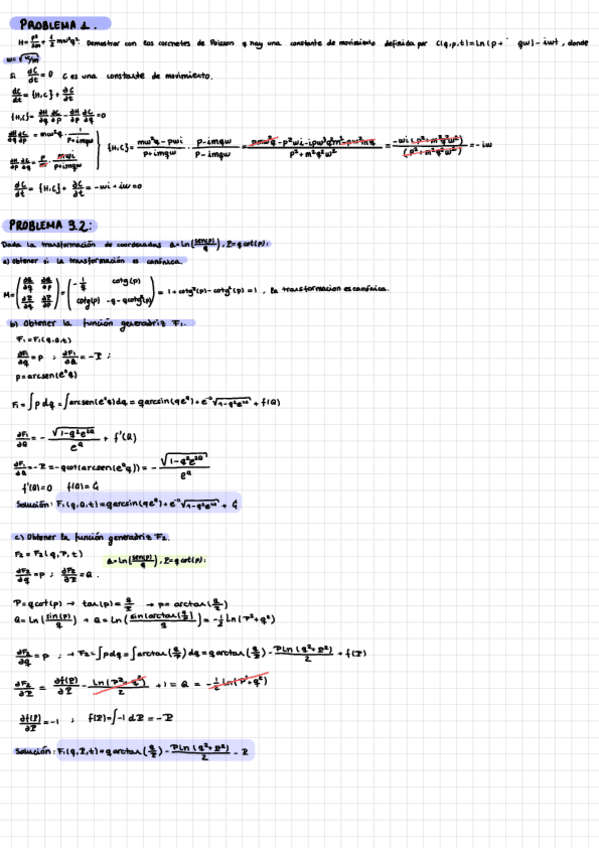 PROBLEMA 1.
H = p²/2m + 1/2 mω²q². Demostrar con los corchetes de Poisson q hay una constante de movimiento definida por C(q,p,t) = ln(p+ qω) - iωt, donde
ω=√(k/m)
Si dC/dt = 0 C es una constante de movimiento.
dC/dt = {H,C} + ∂C/∂t
{H,C} = ∂H/∂q ∂C/∂p - ∂H/∂p ∂C/∂q = 0
∂H/∂q ∂C/∂p = mω²q · 1/(p+imqω)
∂H/∂p ∂C/∂q = p/m · mωi/(p+imqω)
{H,C} = (mω²q - pωi)/(p+imqω) · (p-imqω)/(p-imqω) = (pmω²q - p²ωi - ipω³q²m² - pω²mq)/(p²+m²q²ω²) = -ωi(p²+m²q²ω²)/(p²+m²q²ω²) = -iω
dC/dt = {H,C} + ∂C/∂t = -ωi + iω = 0
PROBLEMA 3.2:
Dada la transformación de coordenadas Q = Ln(sen(p)/q), P = q cot(p):
a) obtener si la transformación es canónica.
M = (∂Q/∂q ∂Q/∂p ∂P/∂q ∂P/∂p) = (-1/q cotg(p) cotg(p) -q-qcotg²(p)) = 1+cotg²(p)-cotg²(p) = 1, la transformacion es canónica.
b) Obtener la función generadriz F₁.
F₁ = F₁(q,Q,t)
∂F₁/∂q = p ; ∂F₁/∂Q = -P ;
p = arcsen(e^Q q)
F₁ = ∫p dq = ∫arcsen(e^Q q) dq = q arcsin(qe^Q) + e^-Q √(1-q²e^2Q) + f(Q)
∂F₁/∂Q = - √(1-q²e^2Q)/e^Q + f'(Q)
∂F₁/∂Q = -P = -q cot(arcsen(e^Q q)) = - √(1-q²e^2Q)/e^Q
f'(Q) = 0 f(Q) = G
Solución: F₁(q,Q,t) = q arcsin(qe^Q) + e^-Q √(1-q²e^2Q) + G
c) Obtener la función generadriz F₂.
F₂ = F₂(q,P,t) Q = Ln(sen(p)/q), P = q cot(p):
∂F₂/∂q = p ; ∂F₂/∂P = Q.
P = q cot(p) → tan(p) = q/P → p = arctan(q/P)
Q = Ln(sin(p)/q) → Q = Ln(sin(arctan(q/P))/q) = -1/2 Ln(P²+q²)
∂F₂/∂q = p ; → F₂ = ∫p dq = ∫arctan(q/P) dq = q arctan(q/P) - P Ln(q²+P²)/2 + f(P)
∂F₂/∂P = ∂f(P)/∂P - Ln(P²+q²)/2 + 1 = Q = -1/2 Ln(P²+q²)
∂f(P)/∂P = -1 ; f(P) = ∫-1 dP = -P
Solución: F₁(q,P,t) = q arctan(q/P) - P Ln(q²+P²)/2 - P